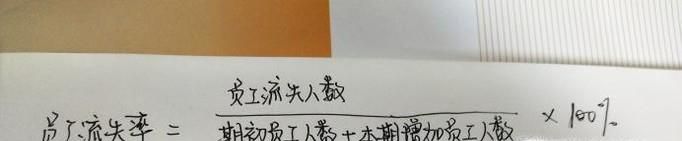 员工流失率 = 员工流失人数 / 期初员工人数+本期增加员工人数 × 100%